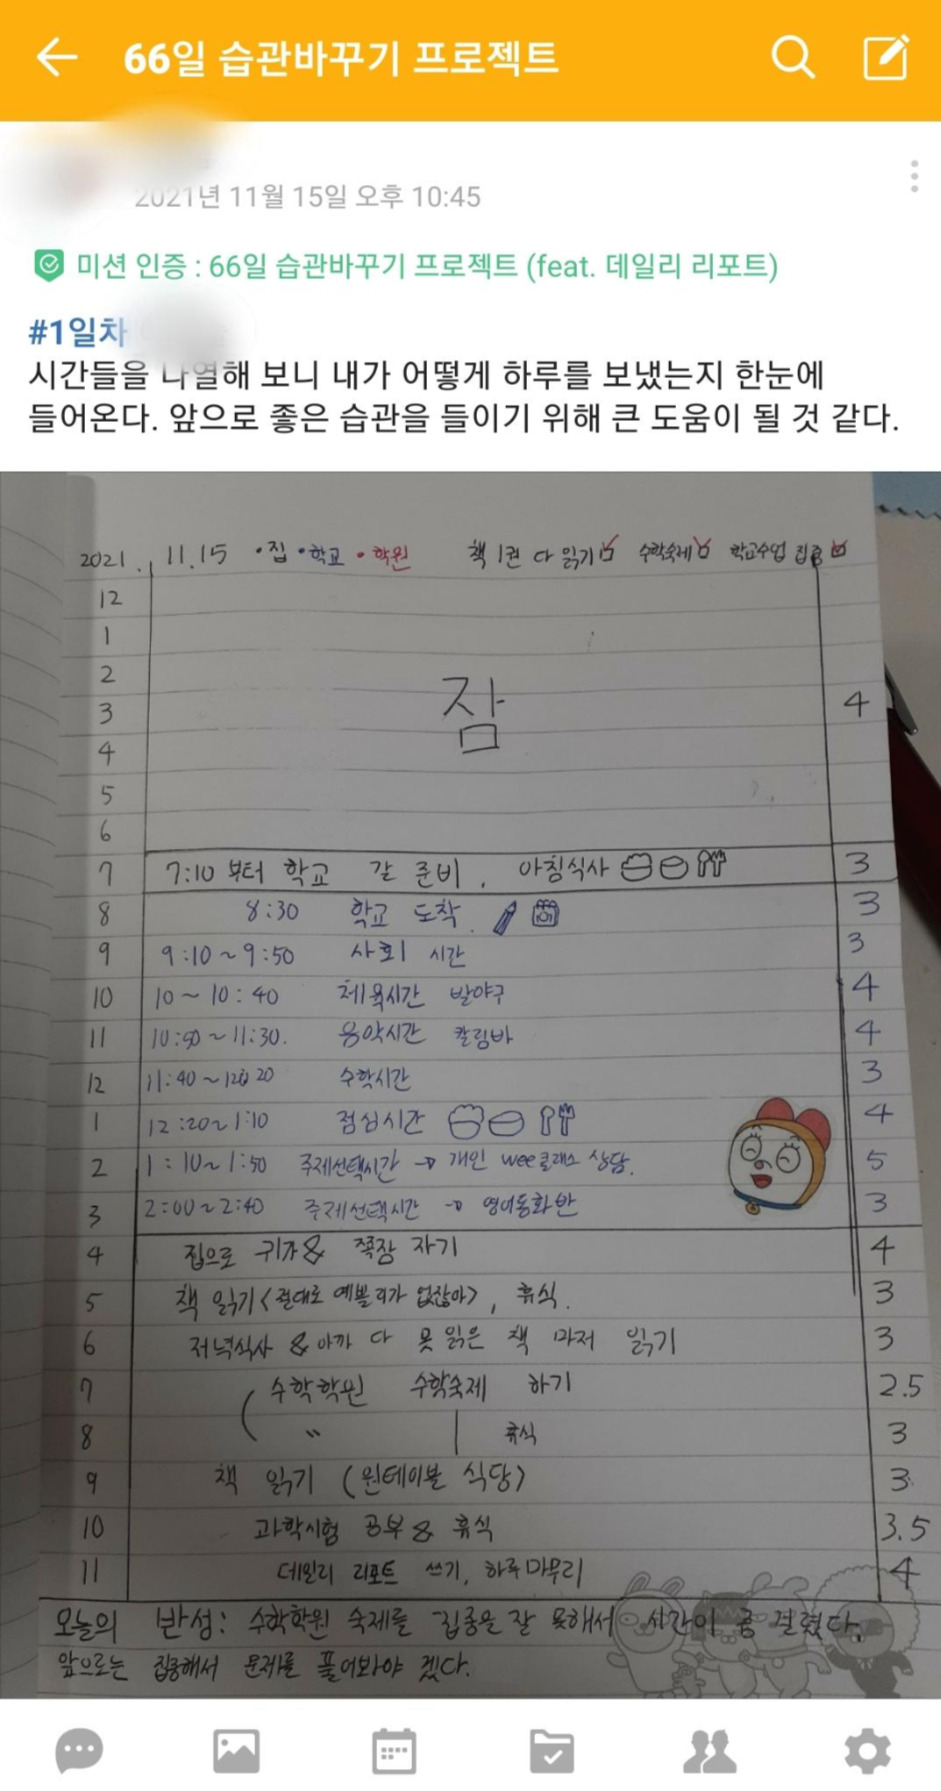 66일 습관바꾸기 프로젝트
2021년 11월 15일 오후 10:45
미션 인증 : 66일 습관바꾸기 프로젝트 (feat. 데일리 리포트)
#1일차
시간들을 나열해 보니 내가 어떻게 하루를 보냈는지 한눈에
들어온다. 앞으로 좋은 습관을 들이기 위해 큰 도움이 될 것 같다.
2021. 11.15 •집 •학교 •학원 책 1권 다 읽기 수학숙제 학교수업 집중
12
1
2
3 잠 4
4
5
6
7 7:10 부터 학교 갈 준비, 아침식사 3
8 8:30 학교 도착. 3
9 9:10~9:50 사회 시간 3
10 10~10:40 체육시간 발야구 4
11 10:50~11:30. 음악시간 칼림바 4
12 11:40~12:20 수학시간 3
1 12:20~1:10 점심시간 4
2 1:10~1:50 주제선택시간 → 개인 wee클래스 상담. 5
3 2:00~2:40 주제선택시간 → 영어동화반 3
4 집으로 귀가 & 쪽잠 자기 4
5 책 읽기<절대로 예쁠리가 없잖아>, 휴식. 3
6 저녁식사 & 아까 다 못 읽은 책 마저 읽기 3
7 수학학원 수학숙제 하기 2.5
8 〃 휴식 3
9 책 읽기 (원테이블 식당) 3
10 과학시험 공부 & 휴식 3.5
11 데일리 리포트 쓰기, 하루마무리 4
오늘의 반성: 수학학원 숙제를 집중을 잘 못해서 시간이 좀 걸렸다.
앞으로는 집중해서 문제를 풀어봐야 겠다.